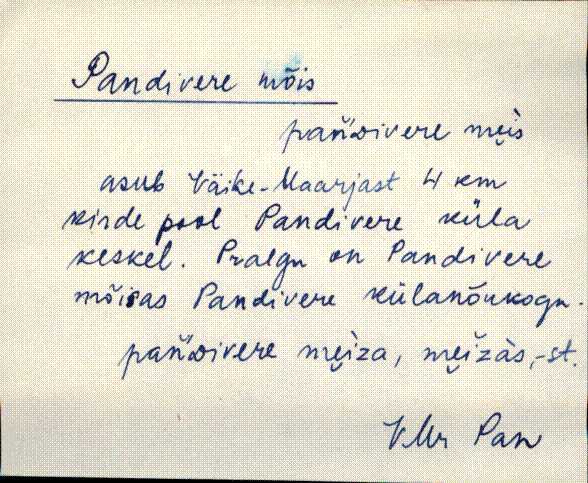 Pandivere mõis
pan̆ᴅivere mę̮i̮s
asub Väike-Maarjast 4 km
kirde pool Pandivere küla
keskel. Praegu on Pandivere
mõisas Pandivere külanõukogu.
pan̆ᴅivere mę̮i̮za, mę̮i̮žàs, -st.
VMr Pan